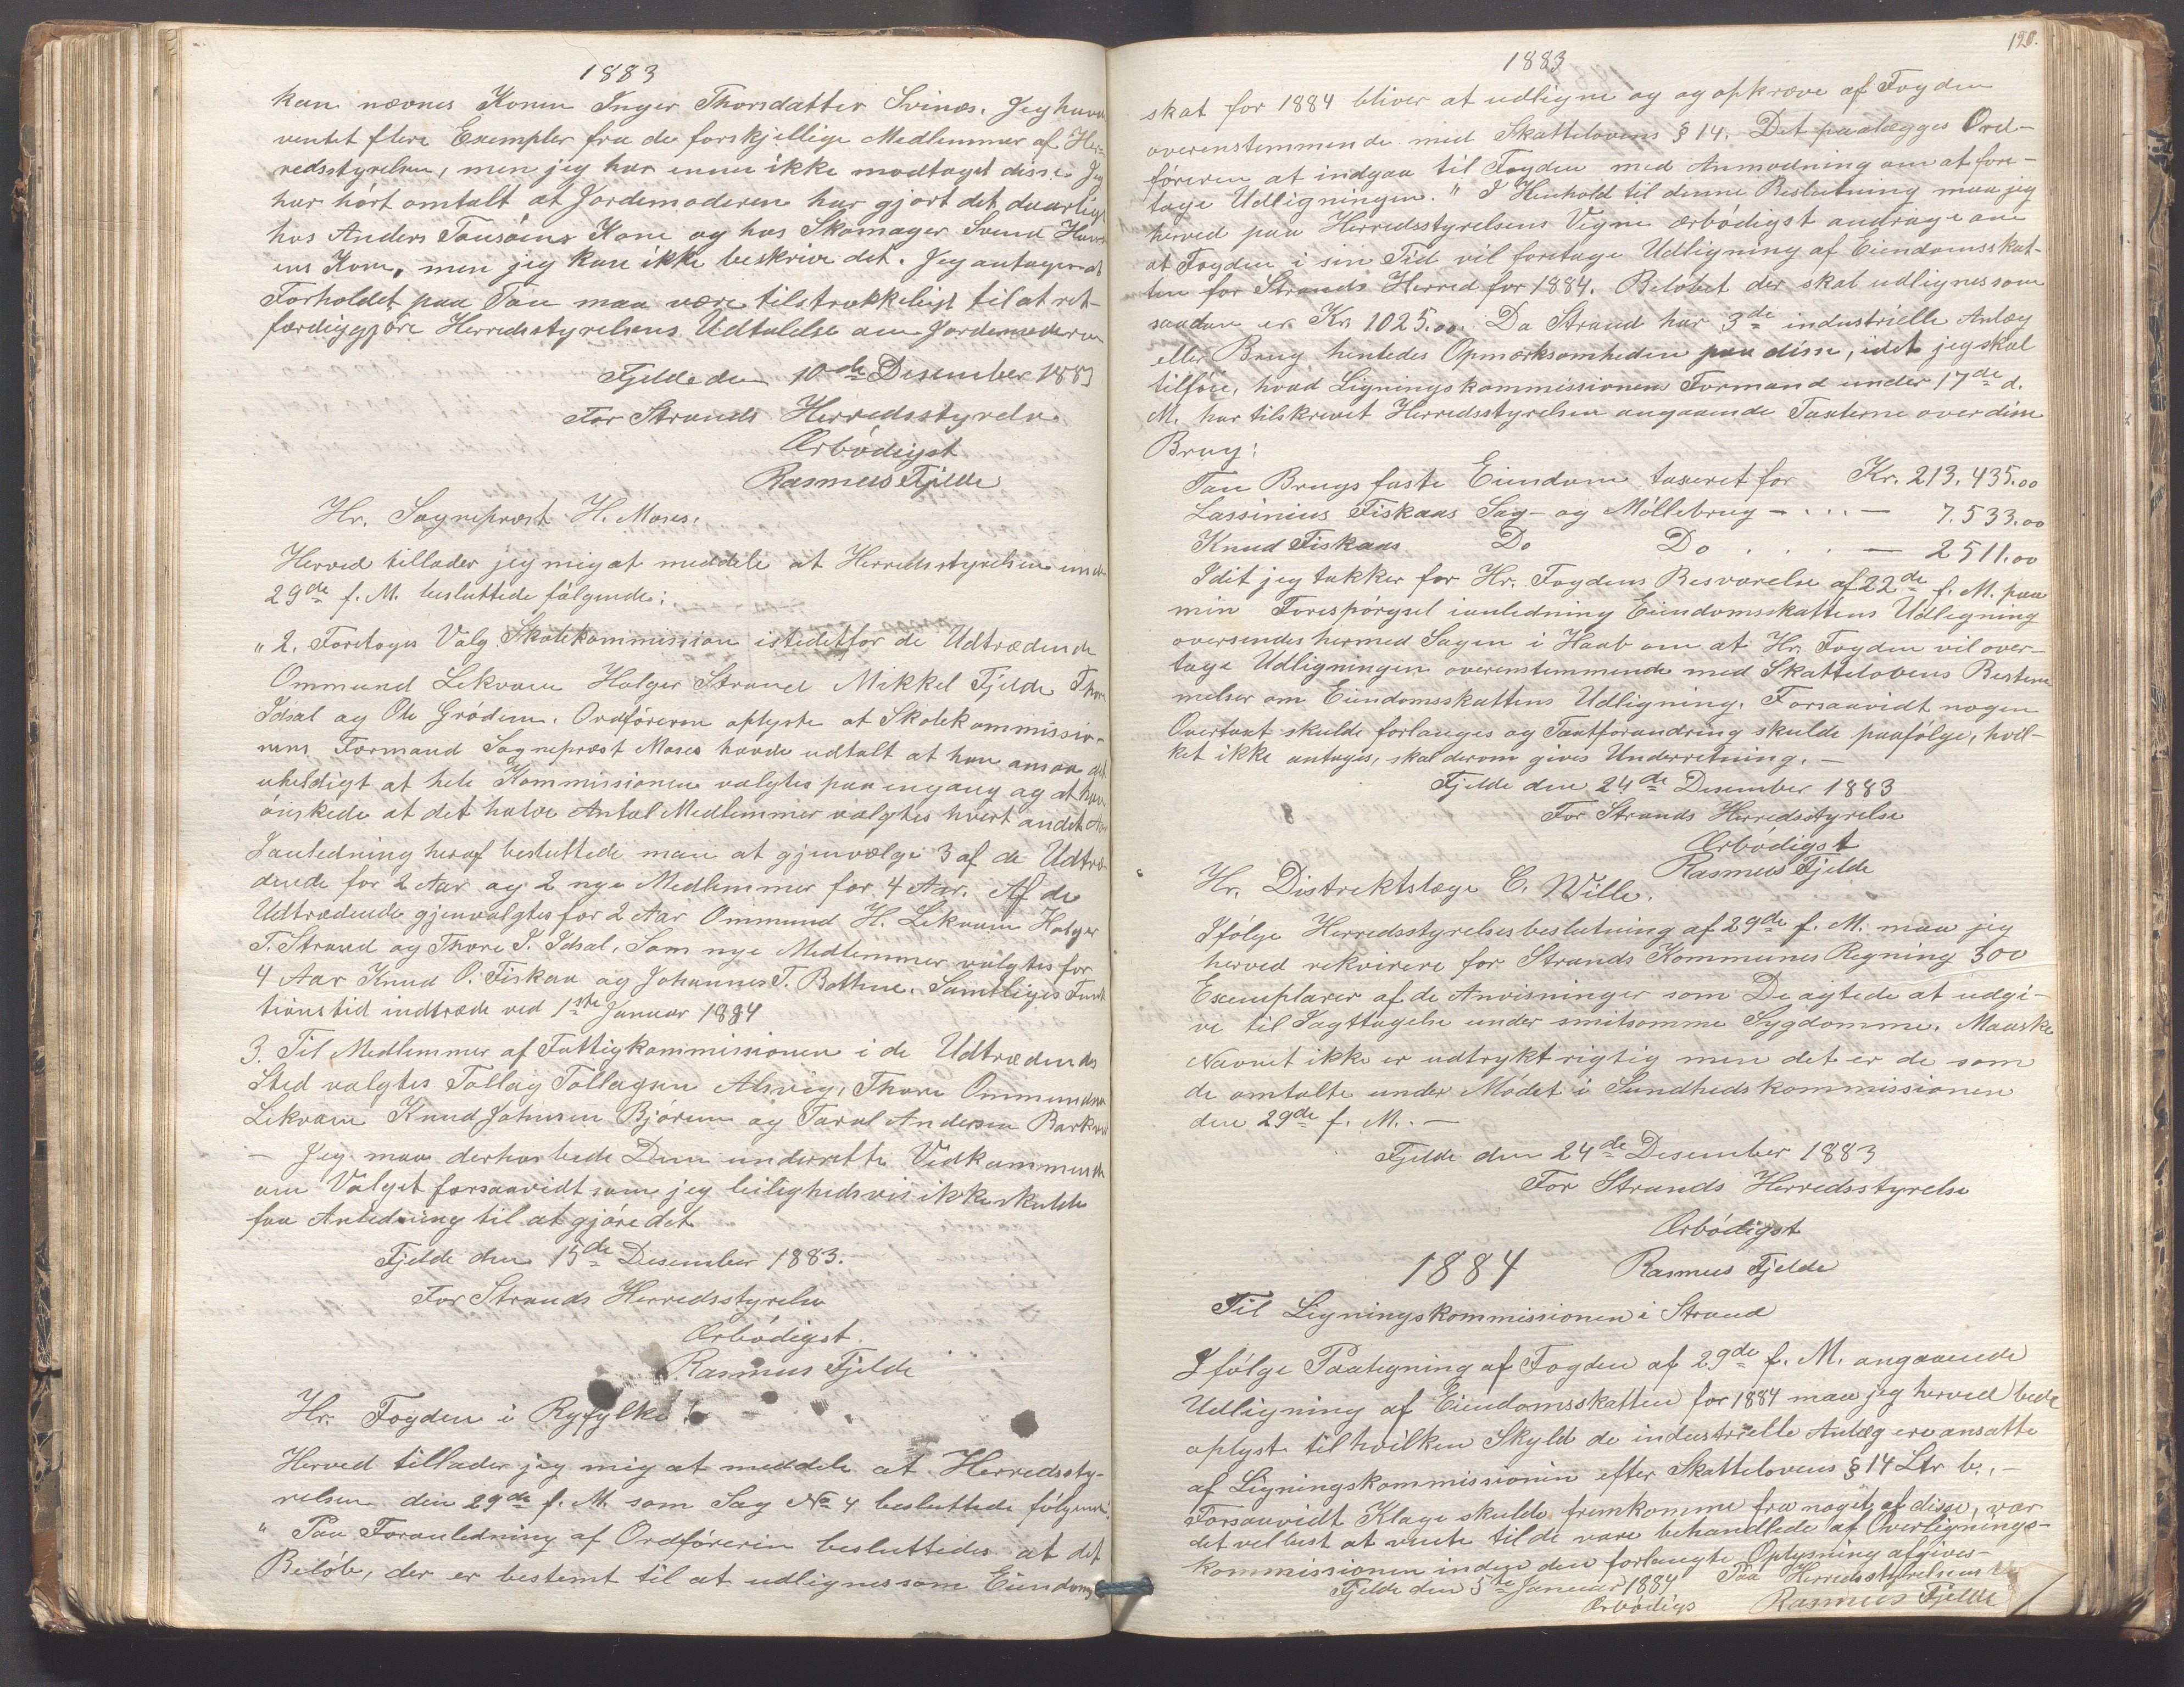 1883
kan nævnes Konen Inger Thorsdatter Svinæs. Jeg havde
ventet flere Exempler fra de forskjellige Medlemmer af Her-
redsstyrelsen, men jeg har ennu ikke modtaget disse. Jeg
har hørt omtalt at Jordemoderen har gjort det daarligt
hos Anders Tousøens Kone og hos Skomager Svend
ens Kone, men jeg kan ikke beskrive det. Jeg antager at
Forholdet paa Tau maa være tilstrækkeligt til at ret-
færdiggjøre Herredsstyrelsens Udtalelse om Jordemoderen
Fjelde den 10de Desember 1883
For Strands Herredsstyrelse
Ærbødigst
Rasmus Fjelde
Hr. Sogneprest H. Moses.
Herved tillader jeg mig at meddele at Herredsstyrelsen under
29de f. M. besluttede følgende:
"2. Foretoges Valg Skolekommission istedetfor de Udtrædende
Ommund Lekvam Holger Strand Mikkel Fjelde Thore
Idsal og Ole Grødem. Ordføreren oplyste at Skolekommissio-
nens Formand Sogneprest Moses havde udtalt at han ansaa det
uheldigt at hele Kommissionen valgtes paa engang og at han
ønskede at det halve Antal Medlemmer valgtes hvert andet Aar
Ianledning heraf besluttede man at gjenvælge 3 af de Udtræ-
dende for 2 Aar og 2 nye Medlemmer for 4 Aar. Af de
Udtrædende gjenvalgtes for 2 Aar Ommund H. Lekvam Holger
T. Strand og Thore I. Idsal. Som nye Medlemmer valgtes for
4 Aar Knud O. Fiskaa og Johannes T. Bothne. Samtliges Funk
tionstid indtræde ved 1ste Januar 1884
3. Til Medlemmer af Fattigkommissionen i de Udtrædendes
Sted valgtes Tollag Tollagsen Alsvig, Thore Ommundsen
Lekvam Knud Johnsen Bjørum og Taral Andersen Barkved
– Jeg maa derhos bede Dem underrette Vedkommende
om Valget forsaavidt som jeg leilighedsvis ikke skulde
faa Anledning til at gjøre det
Fjelde den 15de Desember 1883.
For Strands Herredsstyrelse
Ærbødigst.
Rasmus Fjelde
Hr. Fogden i Ryfylke!
Herved tillader jeg mig at meddele at Herredssty-
relsen den 29de f. M. som Sag No 4 besluttede følgende:
" Paa Foranledning af Ordføreren besluttedes at det
Beløb, der er bestemt til at udlignes som Eiendoms
120.
1883
skat for 1884 bliver at udligne og og opkræve af Fogden
overenstemmende med Skattelovens § 14. Det paalægges Ord-
føreren at indgaa til Fogden med Anmodning om at fore-
tage Udligningen." I Henhold til denne Beslutning maa jeg
herved paa Herredsstyrelsens Vegne ærbødigst andrage om
at Fogden i sin Tid vil foretage Udligning af Eiendomsskat-
ten for Strands Herred for 1884. Beløbet der skal udlignes som
saadan er Kr. 1025.00. Da Strand har 3de industrielle Anlæg
eller Brug henledes Opmærksomheden paa disse, idet jeg skal
tilføie, hvad Ligningskommissionens Formand under 17de d.
M. har tilskrevet Herredsstyrelsen angaaende Taxterne over disse
Brug:
Tau Brugs faste Eiendom taxeret for Kr. 213.435.00
Lassinius Fiskaas Sag- og Møllebrug - . . . — 7.533.00
Knud Fiskaas Do Do . . . — 2511.00
Idet jeg takker for Hr. Fogdens Besvarelse af 22de f. M. paa
min Forespørgsel ianledning Eiendomsskattens Udligning
oversendes hermed Sagen i Haab om at Hr. Fogden vil over-
tage Udligningen overenstemmende med Skattelovens Bestem
melser om Eiendomsskattens Udligning. Forsaavidt nogen
Overtaxt skulde forlanges og Taxtforandring skulde paafølge, hvil-
ket ikke antages, skal derom gives Underretning. —
Fjelde den 24de Desember 1883
For Strands Herredsstyrelse
Ærbødigst
Rasmus Fjelde
Hr. Distriktslæge C. Wille.
Ifølge Herredsstyrelsesbeslutning af 29de f. M. maa jeg
herved rekvirere for Strands Kommunes Regning 300
Exemplarer af de Anvisninger som De agtede at udgi-
ve til Iagttagelse under smitsomme Sygdomme. Maaske
Navnet ikke er udtrykt rigtig men det er de som
de omtalte under Mødet i Sundhedskommissionen
den 29de f. M. . —
Fjelde den 24de Desember 1883
For Strands Herredsstyrelse
Ærbødigst
Rasmus Fjelde
1884
Til Ligningskommissionen i Strand
Ifølge Paategning af Fogden af 29de f. M. angaaende
Udligning af Eiendomsskatten for 1884 maa jeg herved bede
oplyst til hvilken Skyld de industrielle Anlæg ere ansatte
af Ligningskommissionen efter Skattelovens § 14 Ltr b. . —
Forsaavidt Klage skulde fremkomme fra noget af disse, var
det vel best at vente til de vare behandlede af Overlignings-
kommissionen inden den forlangte Oplysning afgives —
Fjelde den 5te Januar 1884 Paa Herredsstyrelsens
Ærbødigs Rasmus Fjelde